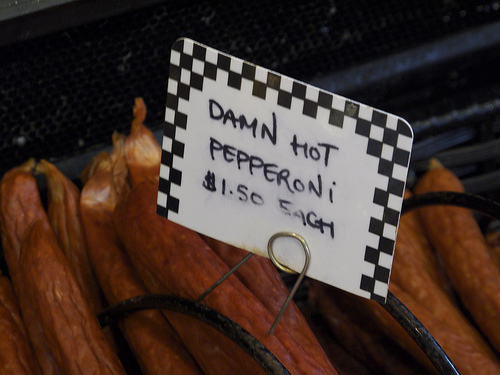 DAMN HOT
PEPPERONi
$1.50 EACH